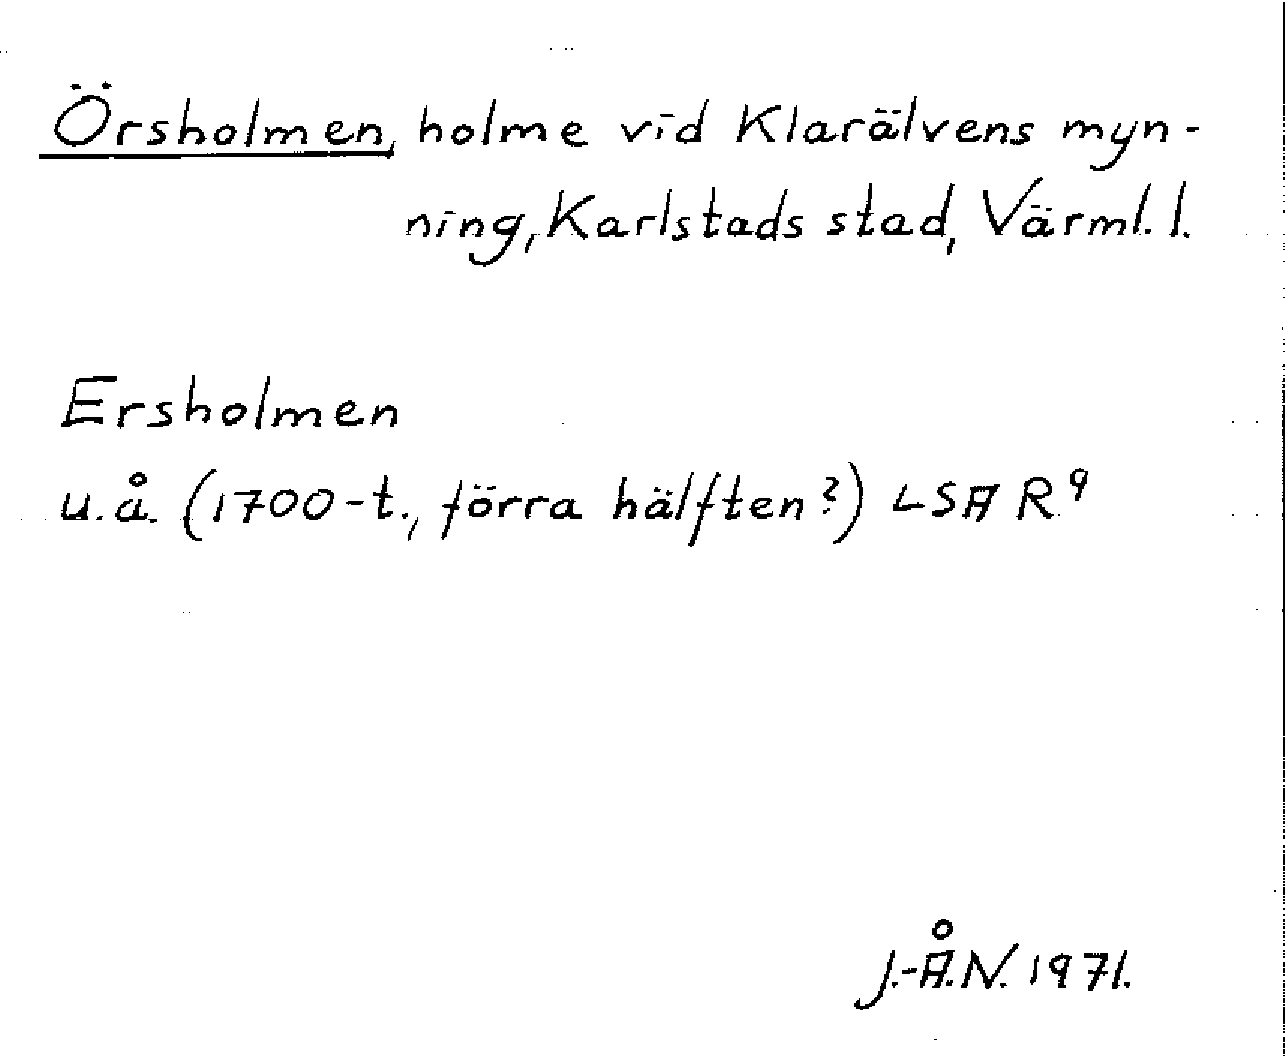 Örsholmen, holme vid Klarälvens myn-
ning, Karlstads stad, Värml. l.
Ersholmen
u.å. (1700-t., förra hälften?) LSA R⁹
J.-Å.N. 1971.